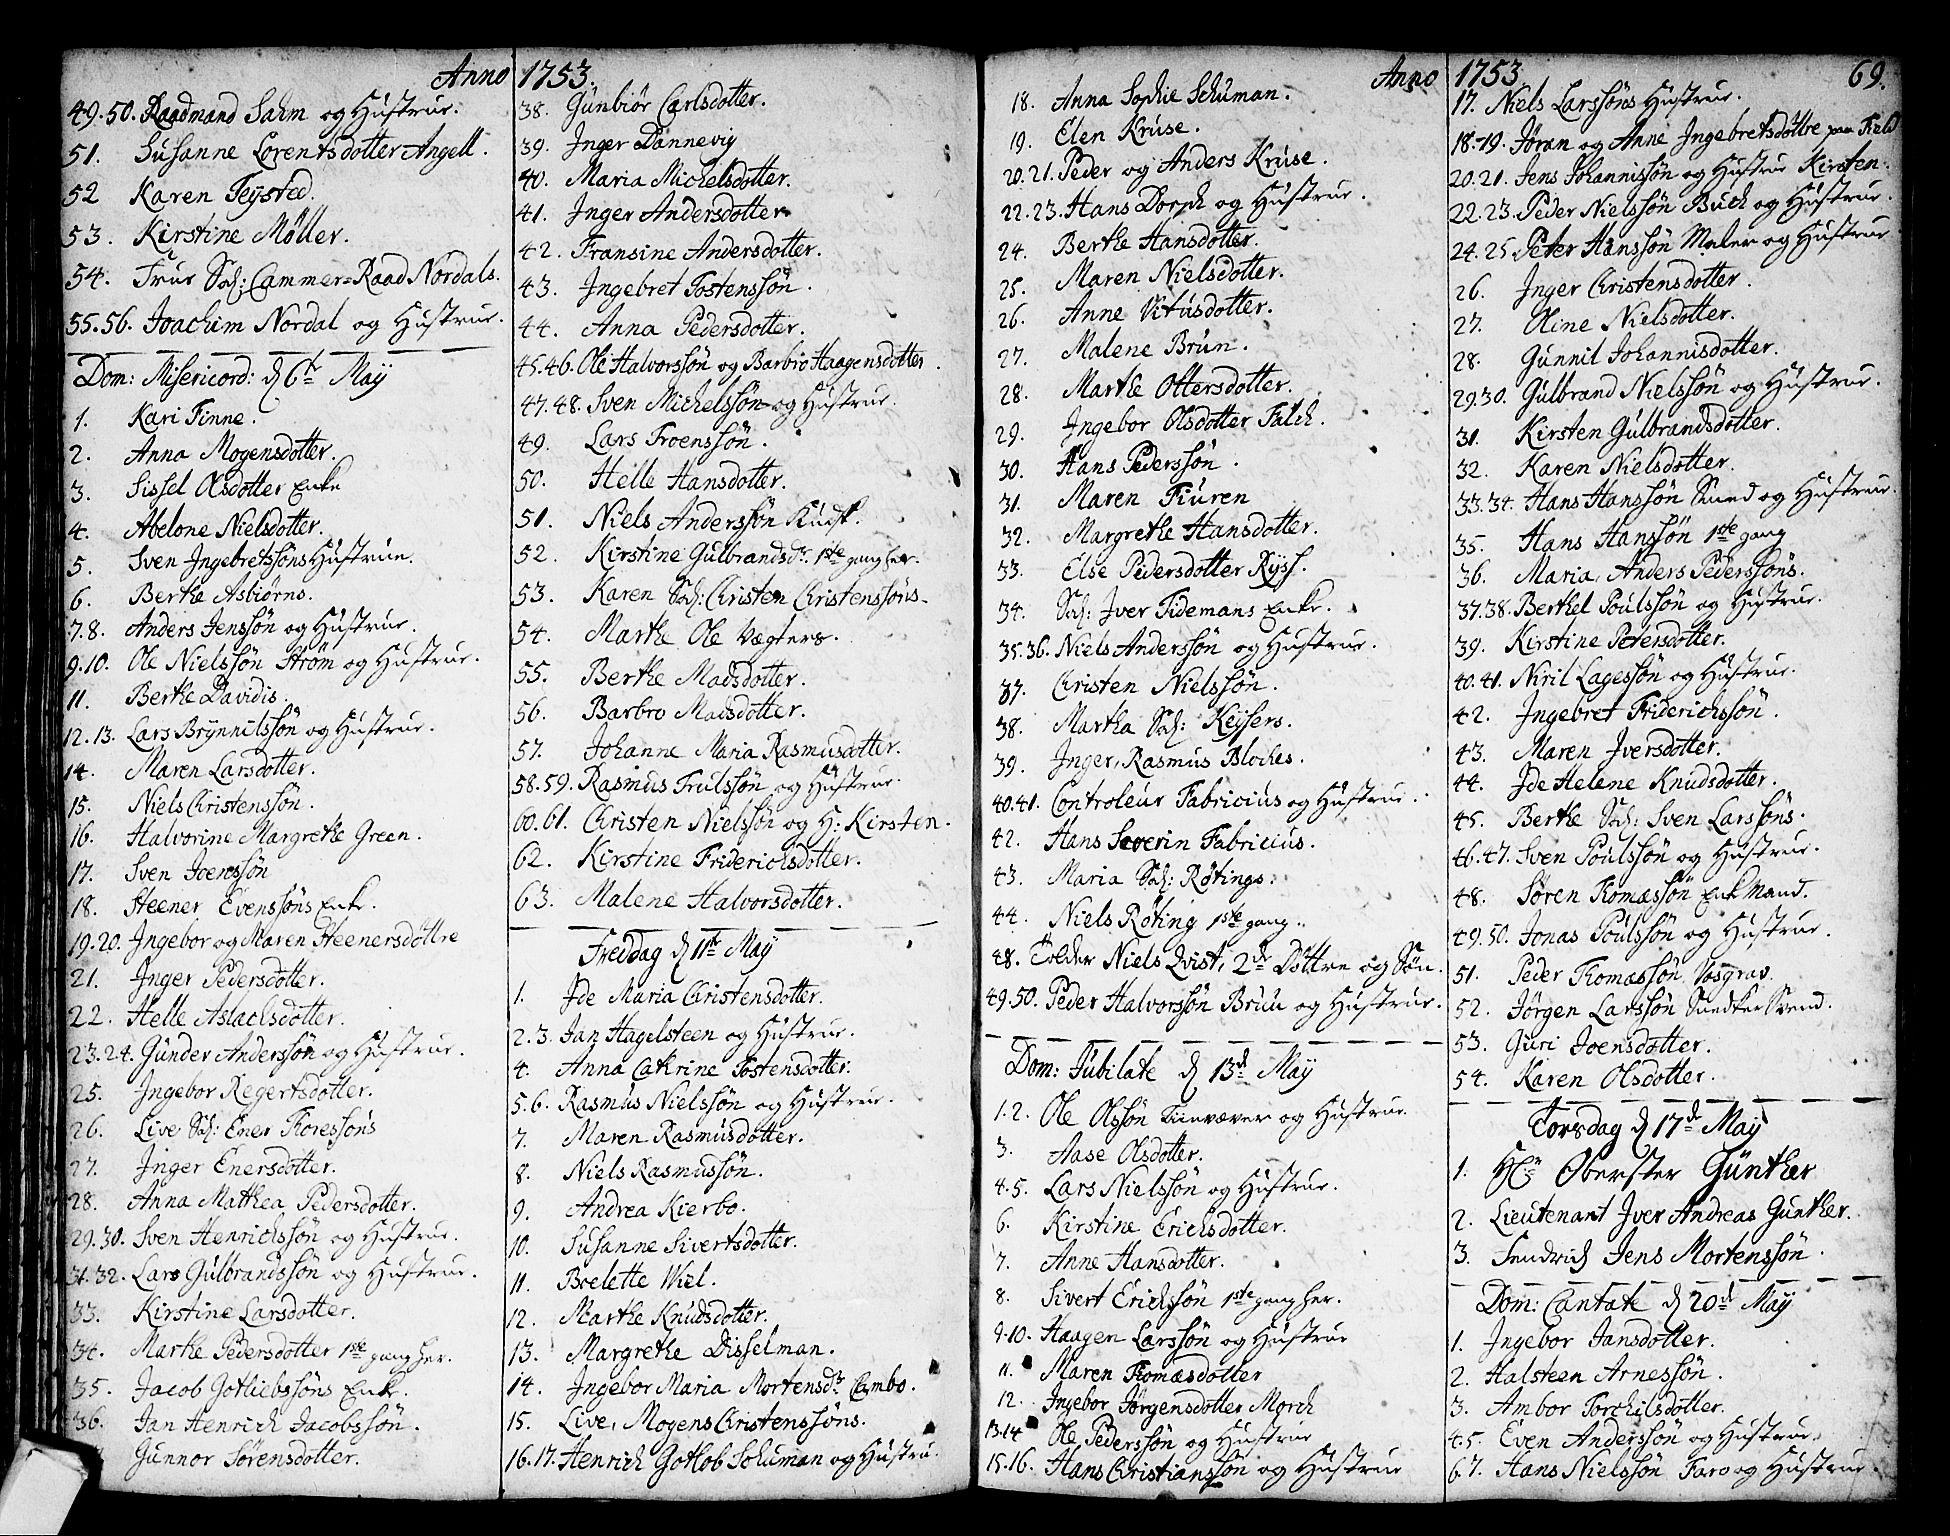 Anno 1753.
49.50. Raadmand Sahm og Hustrue.
51. Susanne Lorentsdotter Angell.
52 Karen Feysted.
53. Kirstine Møller.
54. Frue Sal: Cammer=Raad Nordals.
55.56. Joachim Nordal og Hustrue.
Dom: Misericord: d 6te Maÿ
1. Kari Finne.
2. Anna Mogensdotter.
3. Sissel Olsdotter Enke
4. Abelone Nielsdotter.
5. Sven Ingebretssöns Hustrue.
6. Berthe Asbiørns.
7.8. Anders Jenssön og Hustrue.
9.10. Ole Nielssön Strøm og Hustrue.
11. Berthe Davidis.
12.13. Lars Brynnilssön og Hustrue.
14. Maren Larsdotter.
15. Niels Christenssön.
16. Halvorine Margrethe Green.
17. Sven Joenssön
18. Steener Evenssöns Enke.
19.20. Ingebor og Maren Steenersdøttre
21. Inger Pedersdotter.
22. Helle Aslachsdotter.
23.24. Gunder Anderssön og Hustrue.
25. Ingebor Regertsdotter.
26. Live Sal: Ener Thoressöns
27. Inger Enersdotter.
28. Anna Mathea Pedersdotter.
29.30. Sven Henrichssön og Hustrue.
31.32. Lars Gulbrandssön og Hustrue.
33. Kirstine Larsdotter.
34. Marthe Pedersdotter 1ste gang her.
35. Jacob Gotliebssöns Enke.
36. Jan Henrich Jacobssön.
Gunnor Sörensdotter.
38. Gunbiør Carlsdotter.
39. Inger Dannevig
40. Maria Michelsdotter.
41. Inger Andersdotter.
42. Fransine Andersdotter.
43. Ingebret Tostenssön.
44. Anna Pedersdotter.
45.46. Ole Halvorssön og Barbro Haagensdotter.
47.48. Sven Michelssön og Hustrue.
49. Lars Troenssön.
50. Helle Hansdotter.
51. Niels Anderssön Kudsk.
52. Kirstine Gulbrandsdr. 1ste gang her.
53. Karen Sal: Christen Christenssöns.
54. Marthe Ole Vægters.
55. Berthe Madsdotter.
56. Barbro Madsdotter.
57. Johanne Maria Rasmusdotter.
58.59. Rasmus Trulssön og Hustrue.
60.61. Christen Nielssön og H: Kirsten.
62. Kirstine Friderichsdotter.
63. Malene Halvorsdotter.
Freddag d 11te Maÿ
1. Ide Maria Christensdotter.
2.3. Jan Hagelsteen og Hustrue.
4. Anna Cathrine Tostensdotter.
5.6. Rasmus Nielssön og Hustrue.
7. Maren Rasmusdotter.
8. Niels Rasmussön.
9. Andrea Kierbo.
10. Susanne Sivertsdotter.
11. Boelette Wiel.
12. Marthe Knudsdotter.
13. Margrethe Disselman.
14. Ingebor Maria Mortensdr. Cambo.
15. Live, Mogens Christenssöns.
16.17. Henrich Gotlob Schuman og Hustru.
Anno 1753 69.
18. Anna Sophie Schuman.
19. Elen Kruse.
20.21. Peder og Anders Kruse.
22.23. Hans Dorph og Hustrue.
24. Berthe Hansdotter.
25. Maren Nielsdotter.
26. Anne Vitusdotter.
27. Malene Brun.
28. Marthe Ottersdotter.
29. Ingebor Olsdotter Falch.
30. Hans Pederssön.
31. Maren Fiuren
32. Margrethe Hansdotter.
33. Else Pedersdotter Ryss.
34. Sal: Iver Tidemans Enke.
35.36. Niels Anderssön og Hustrue.
37. Christen Nielssön.
38. Martha Sal: Keysers.
39. Inger, Rasmus Bloches.
40.41. Controleur Fabricius og Hustrue.
42. Hans Severin Fabricius.
43. Maria Sal: Røtings.
44. Niels Røting 1ste gang.
48. Tolder Niels Qvist, 2de Døttre og Søn.
49.50. Peder Halvorssön Bruu og Hustrue.
Dom: Jubilate d 13de Maÿ
1.2. Ole Olssön Linvæver og Hustrue
3. Aase Olsdotter.
4.5. Lars Nielssön og Hustrue.
6. Kirstine Erichsdotter.
7. Anne Hansdotter.
8. Sivert Erichssön 1ste gang her.
9.10. Haagen Larssön og Hustrue
11. Maren Thomæsdotter
12. Ingebor Jørgensdotter Morch
13.14 Ole Pederssön og Hustrue
15.16. Hans Christianssön og Hustrue
17. Niels Larssöns Hustrue.
18.19. Jøran og Anne Ingebretsdøttre paa Field
20.21. Jens Johannissön og Hustrue Kirsten.
22.23. Peder Nielssön Buch og Hustrue.
24.25. Peter Hanssön Maler og Hustrue
26. Inger Christensdotter.
27. Oline Nielsdotter.
28. Gunnil Johannisdotter.
29.30. Gulbrand Nielssön og Hustrue.
31. Kirsten Gulbrandsdotter.
32. Karen Nielsdotter.
33.34. Hans Hanssön Smed og Hustrue.
35. Hans Hanssön 1ste gang
36. Maria, Anders Pederssöns.
37.38. Berthel Poulssön og Hustrue.
39. Kirstine Petersdotter.
40.41. Niril Lagessön og Hustrue.
42. Ingebret Friderichssön.
43. Maren Iversdotter.
44. Ide Helene Knudsdotter.
45. Berthe Sal: Sven Larssöns.
46.47. Sven Poulssön og Hustrue.
48. Søren Thomæssön Enkemand.
49.50. Jonas Poulssön og Hustrue.
51. Peder Thomæssön Vosgrav.
52. Jørgen Larssön Snedker Svend.
53. Guri Joensdotter.
54. Karen Olsdotter.
Torsdag d 17de Maÿ
1. Hr. Oberster Günther
2. Lieutenant Iver Andreas Gunther.
3. Fendrich Jens Mortenssön.
Dom: Cantate d 20de Maÿ
1. Ingebor Jansdotter.
2. Halsteen Arnessön.
3. Ambor Torchilsdotter.
4.5. Even Anderssön og Hustrue.
6.7. Hans Nielssön Faro og Hustrue